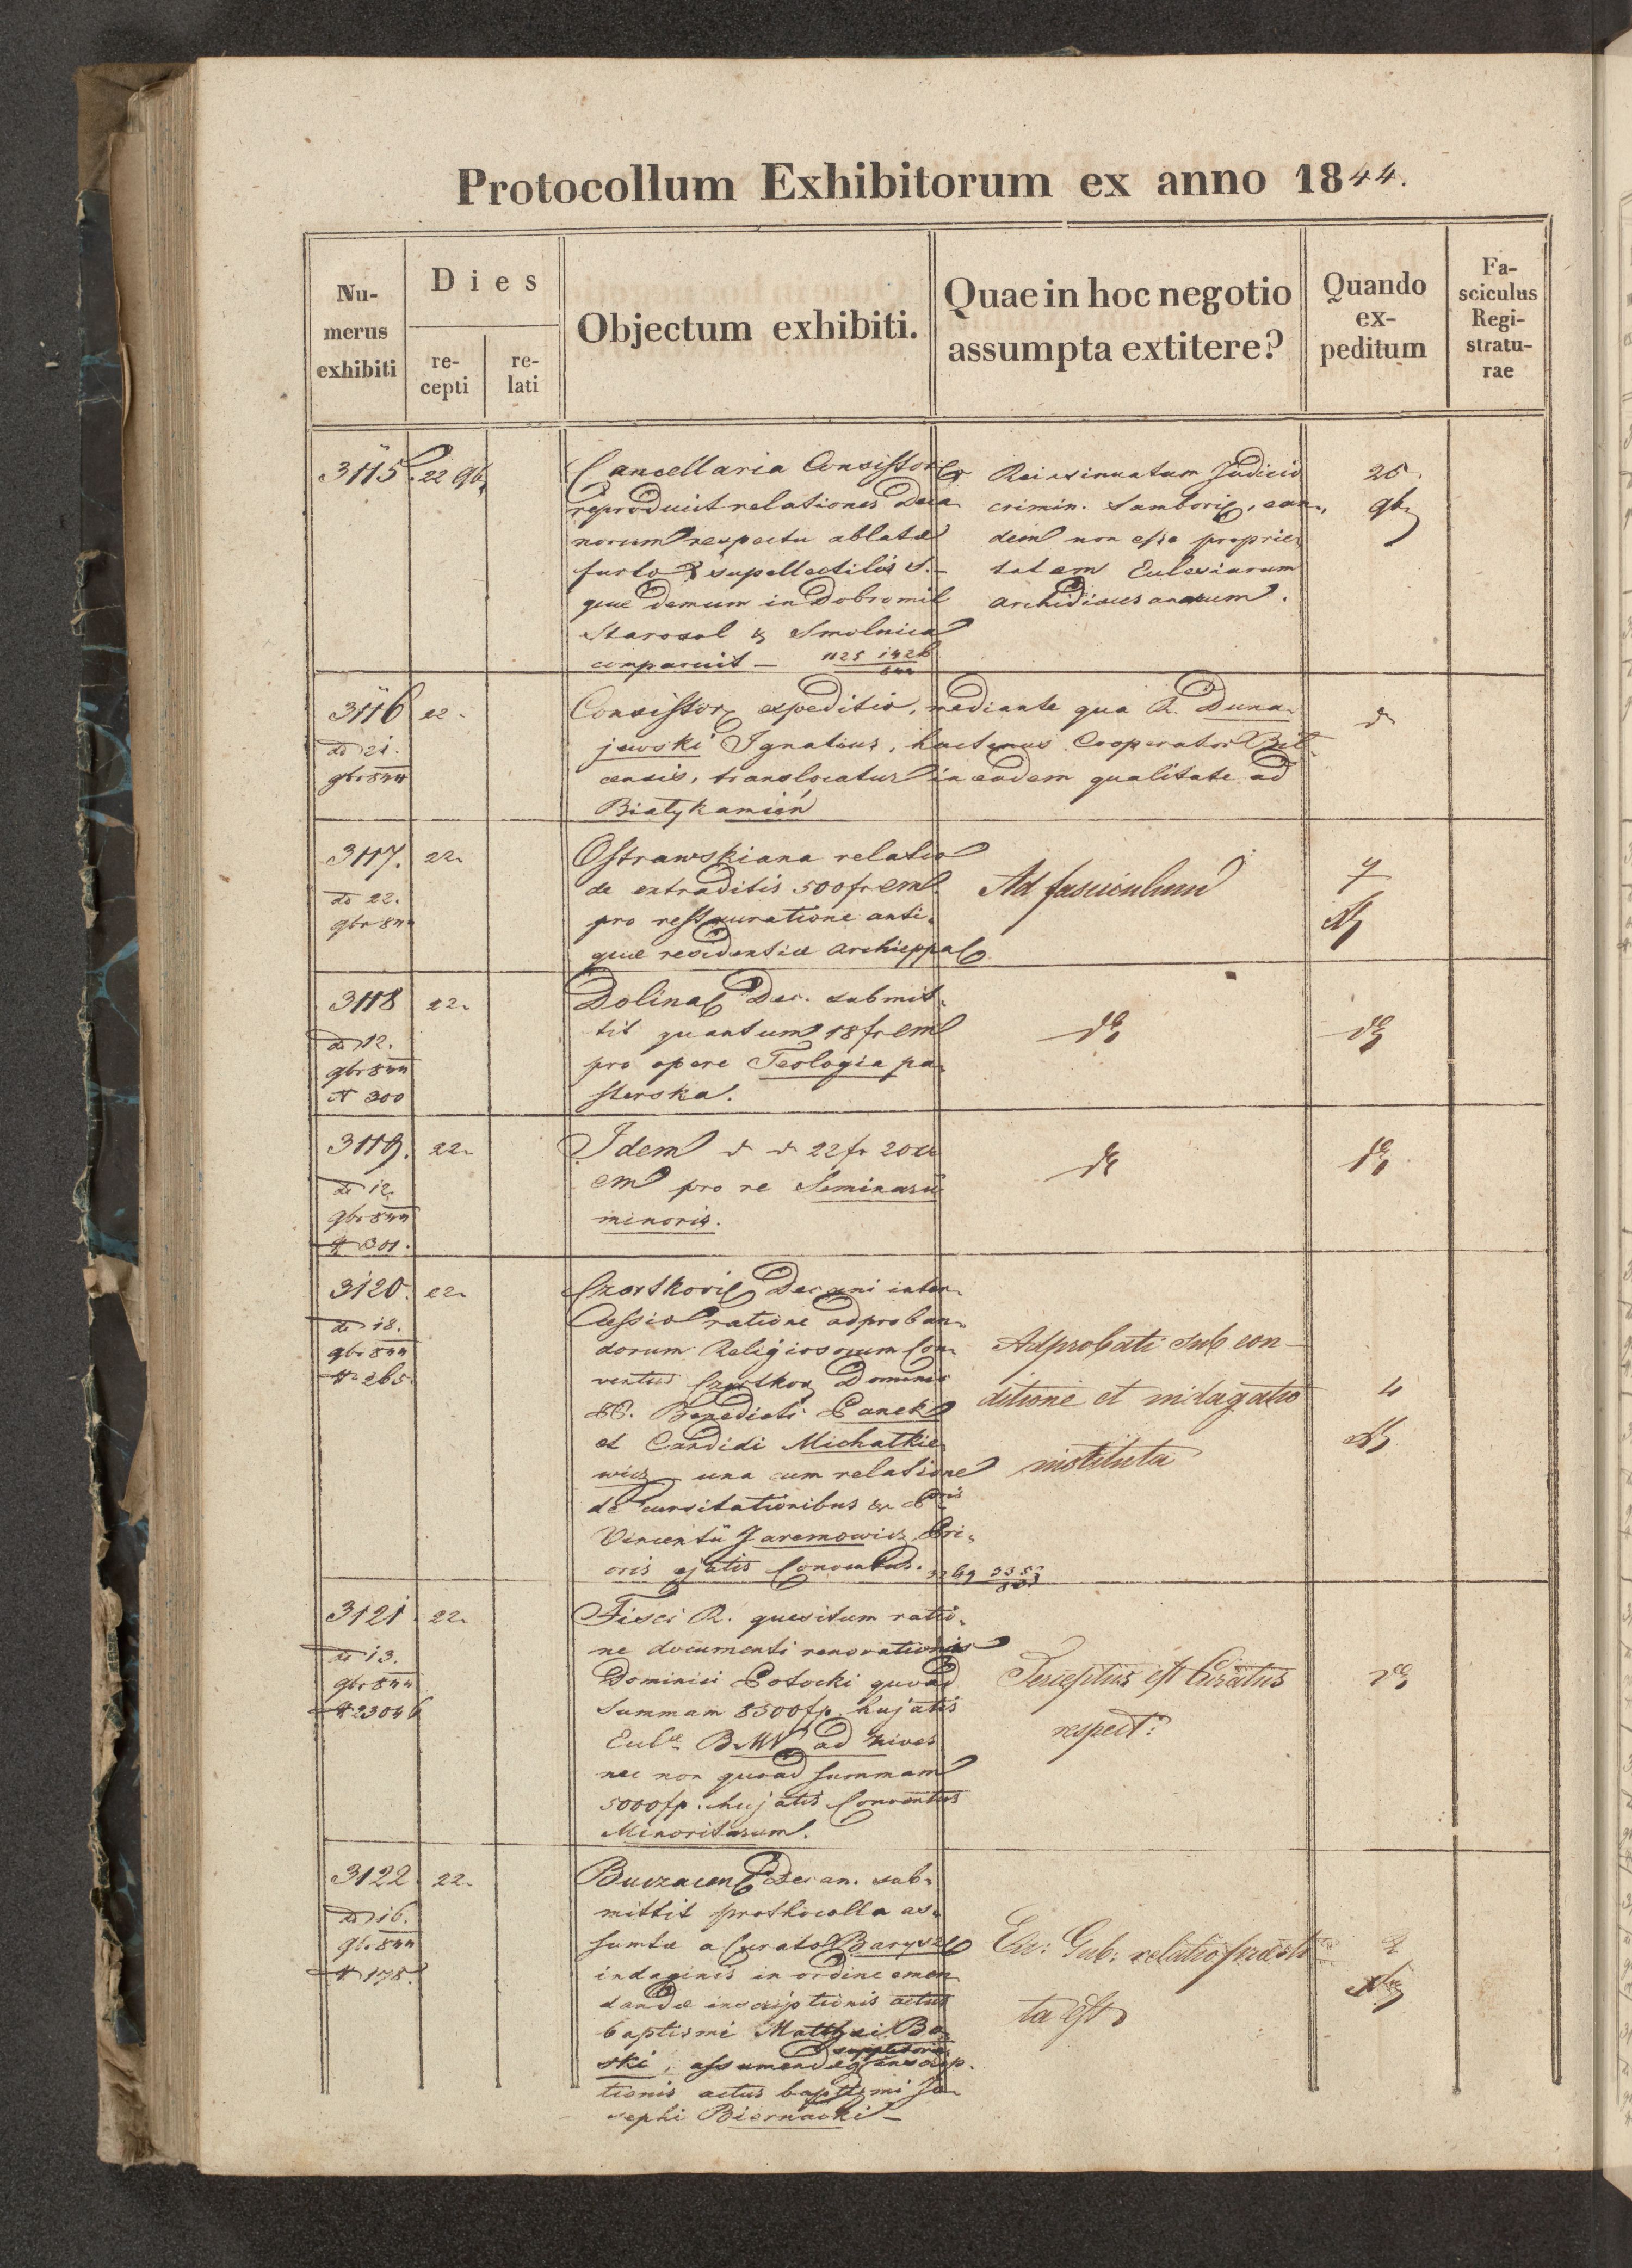 Protocollum Exhibitorum ex anno 1844.
Nu-
merus
exhibiti
Dies
re-
cepti
re-
lati
Objectum exhibiti.
Quae in hoc negotio
assumpta extitere?
Quando
ex-
peditum
Fa-
sciculus
Regi-
stratu-
rae
3115. 22 9b
Cancellaria Consistor
reproducit relationes Deca
norum respectu ablatae
furto supellectilis s.
quae demum in Dobromil
Starosol & Smolnica
comparuit — 1125 1426
844
Reinsinuatum Judicio
crimin. Samborie, ean„
dem non esse proprie„
tatem Eclesiarum
archidioecesanarum.
25.
9b
3116 22.
de 21.
9br 844
Consistor expeditio, mediante qua R. Duna„
jewski Ignatius, hactenus Cooperator Bil
censis, translocatur in eadem qualitate ad
Białykamień
3117. 22.
de 22.
9br 844
Ostrawskiana relatio
de extraditis 500 fr em
pro restauratione anti„
quae residentiae archieppal
Ad fasciculum
7
3118 22.
de 12.
9br 844
N 300
Dolina Dec. submit„
tit quantum 18 fr em
pro opere Teologia pa„
sterska.
3119. 22.
de 12.
9br 844
N 301.
Idem 22 fr 20 x
em pro re Seminarii
minoris.
3120. 22.
de 18.
9br 844
N 265.
Czortkovi Decani inter„
cessio ratione adproban„
dorum Religiosorum Con„
ventus Czortkov Dominic
PP. Benedicti Panek
et Candidi Michalkie„
wicz una cum relatione
de cursitationibus
Vincentii Jaremowicz Pri„
oris ejatis Conventus.
Adprobati sub con-
ditione et indagatio
instituta
4
3121. 22.
de 13.
9br 844
N 23046
Fisci R. quesitum ratio„
ne documenti renovationis
Dominici Potocki quoad
Summam 8500 fp. hujatis
Eccl BMV ad nives
nec non quoad summam
5000 fp. hujatis Conventus
Minoritarum.
Perceptus est Curatus
respect:
3122. 22.
de 16.
9br 844
N 178.
Buczacen Decan. sub„
mittit prothocolla as„
sumta a Curato Barysz
indaginis in ordine emen
dandae inscriptionis actus
baptismi Matthaei Bo
ski, assumendae suppletoriae inscrip„
tionis actus baptismi Jo„
sephi Biernacki —
Exc: Gub: relatio praesti
ta est
2